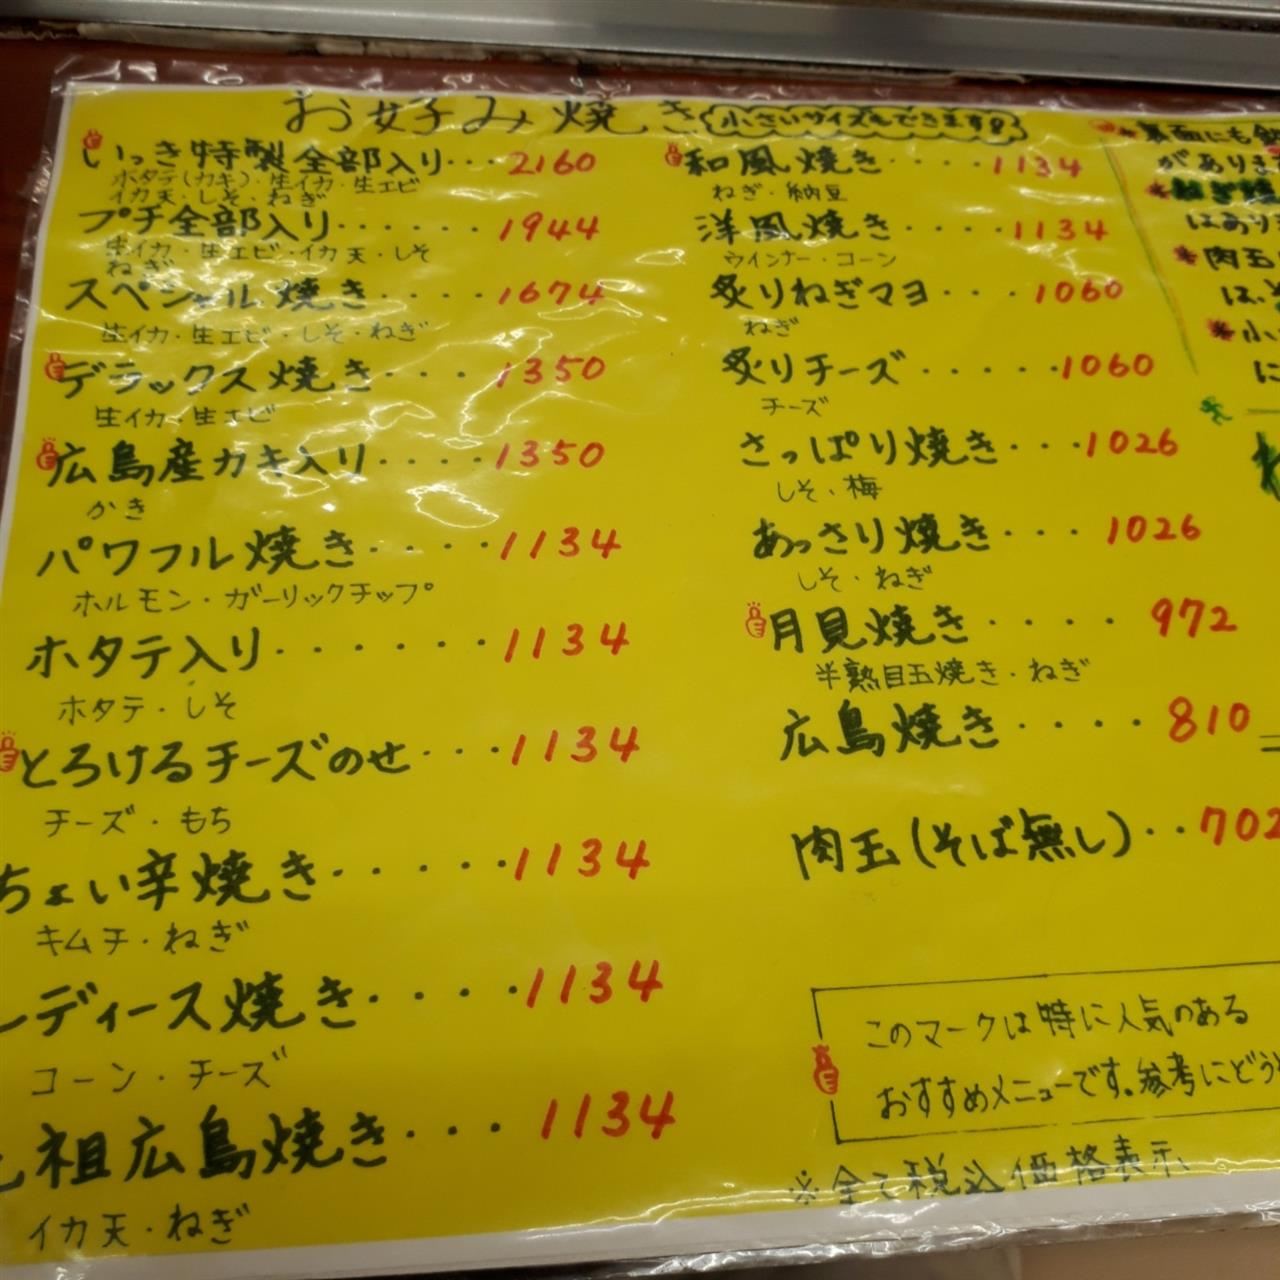 お好み焼き
小さいサイズもできます!
いっき特製全部入り・・・2160
ホタテ(カキ)・生イカ・生エビ
イカ天・しそ・ねぎ
プチ全部入り・・・・・・1944
生イカ・生エビ・イカ天・しそ
ねぎ
スペシャル焼き・・・・1674
生イカ・生エビ・しそ・ねぎ
デラックス焼き・・・・1350
生イカ・生エビ
広島産カキ入り・・・・1350
かき
パワフル焼き・・・・・1134
ホルモン・ガーリックチップ
ホタテ入り・・・・・・・1134
ホタテ・しそ
とろけるチーズのせ・・・1134
チーズ・もち
ちょい辛焼き・・・・・1134
キムチ・ねぎ
ディース焼き・・・・・1134
コーン・チーズ
祖広島焼き・・・・1134
イカ天・ねぎ
和風焼き・・・・1134
ねぎ・納豆
洋風焼き・・・・1134
ウインナー・コーン
炙りねぎマヨ・・・1060
ねぎ
炙りチーズ・・・・・1060
チーズ
さっぱり焼き・・・1026
しそ・梅
あっさり焼き・・・1026
しそ・ねぎ
月見焼き・・・・972
半熟目玉焼き・ねぎ
広島焼き・・・・810
肉玉(そば無し)・・702
このマークは特に人気のある
おすすめメニューです。参考にどう
※全て税込価格表示
裏面にも
がありま
はあり
肉玉
は、そ
小
に